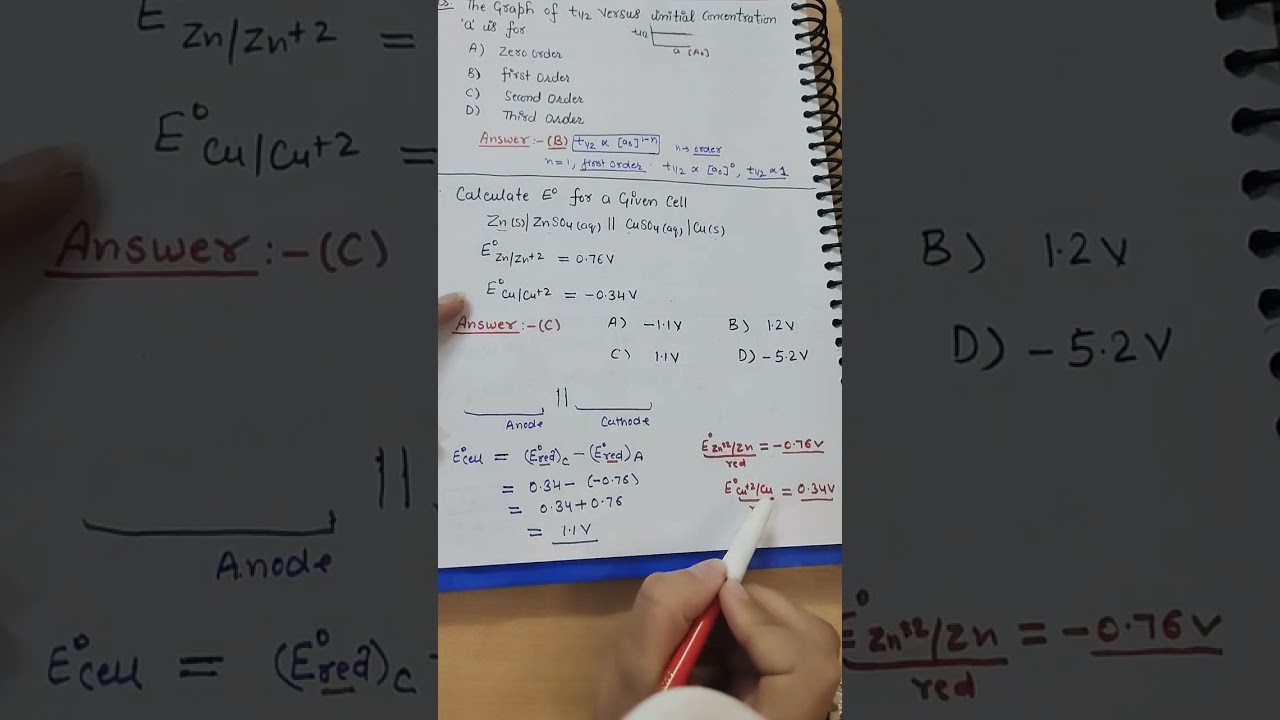 The Graph of t1/2 Versus initial Concentration
'a' is for
t1/2
a [A₀]
A) Zero order
B) first order
C) Second order
D) Third order
Answer:-(B) t1/2 ∝ [a₀]^1-n n→ order
n=1, first order. t1/2 ∝ [a₀]⁰, t1/2 ∝ 1
Calculate E° for a Given Cell
Zn(s)/ZnSO₄(aq) || CuSO₄(aq)|Cu(s)
E°Zn/Zn+2 = 0.76V
E°Cu/Cu+2 = -0.34V
Answer:-(C) A) -1.1V B) 1.2V
C) 1.1V D) -5.2V
||
Anode Cathode
E°cell = (E°red)C - (E°red)A
= 0.34-(-0.76)
= 0.34+0.76
= 1.1V
E°Zn+2/Zn = -0.76V
red
E°Cu+2/Cu = 0.34V
E Zn/Zn+2 =
E°Cu/Cu+2 =
Answer:-(C)
||
Anode
E°cell = (E°red)C
B) 1.2V
D) -5.2V
E°Zn+2/Zn = -0.76V
red